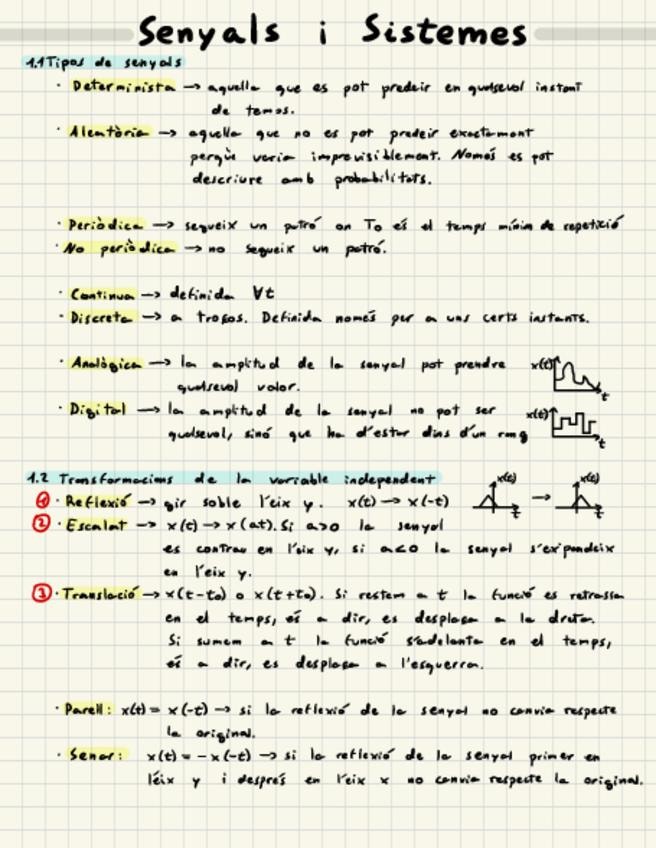 Senyals i Sistemes
1.1 Tipos de senyals
· Determinista → aquella que es pot predeir en qualsevol instant
de temps.
· Aleatòria → aquella que no es pot predeir exactament
perquè varia imprevisiblement. Només es pot
descriure amb probabilitats.
· Periòdica → segueix un patró on To és el temps mínim de repetició
· No periòdica → no segueix un patró.
· Continua → definida ∀t
· Discreta → a trosos. Definida només per a uns certs instants.
· Analògica → la amplitud de la senyal pot prendre x(t)
qualsevol valor. t
· Digital → la amplitud de la senyal no pot ser x(t)
qualsevol, sinó que ha d'estar dins d'un rang t
1.2 Transformacions de la variable independent
① · Reflexió → gir soble l'eix y. x(t) → x(-t) x(t) t → x(t) t
② · Escalat → x(t) → x(at). Si a>0 la senyal
es contrau en l'eix y, si a<0 la senyal s'expandeix
en l'eix y.
③ · Translació → x(t-to) o x(t+to). Si restem a t la funció es retrassa
en el temps, és a dir, es desplaça a la dreta.
Si sumem a t la funció s'adelanta en el temps,
és a dir, es desplaça a l'esquerra.
· Parell: x(t) = x(-t) → si la reflexió de la senyal no canvia respecte
la original.
· Senar: x(t) = -x(-t) → si la reflexió de la senyal primer en
l'éix y i després en l'eix x no canvia respecte la original.